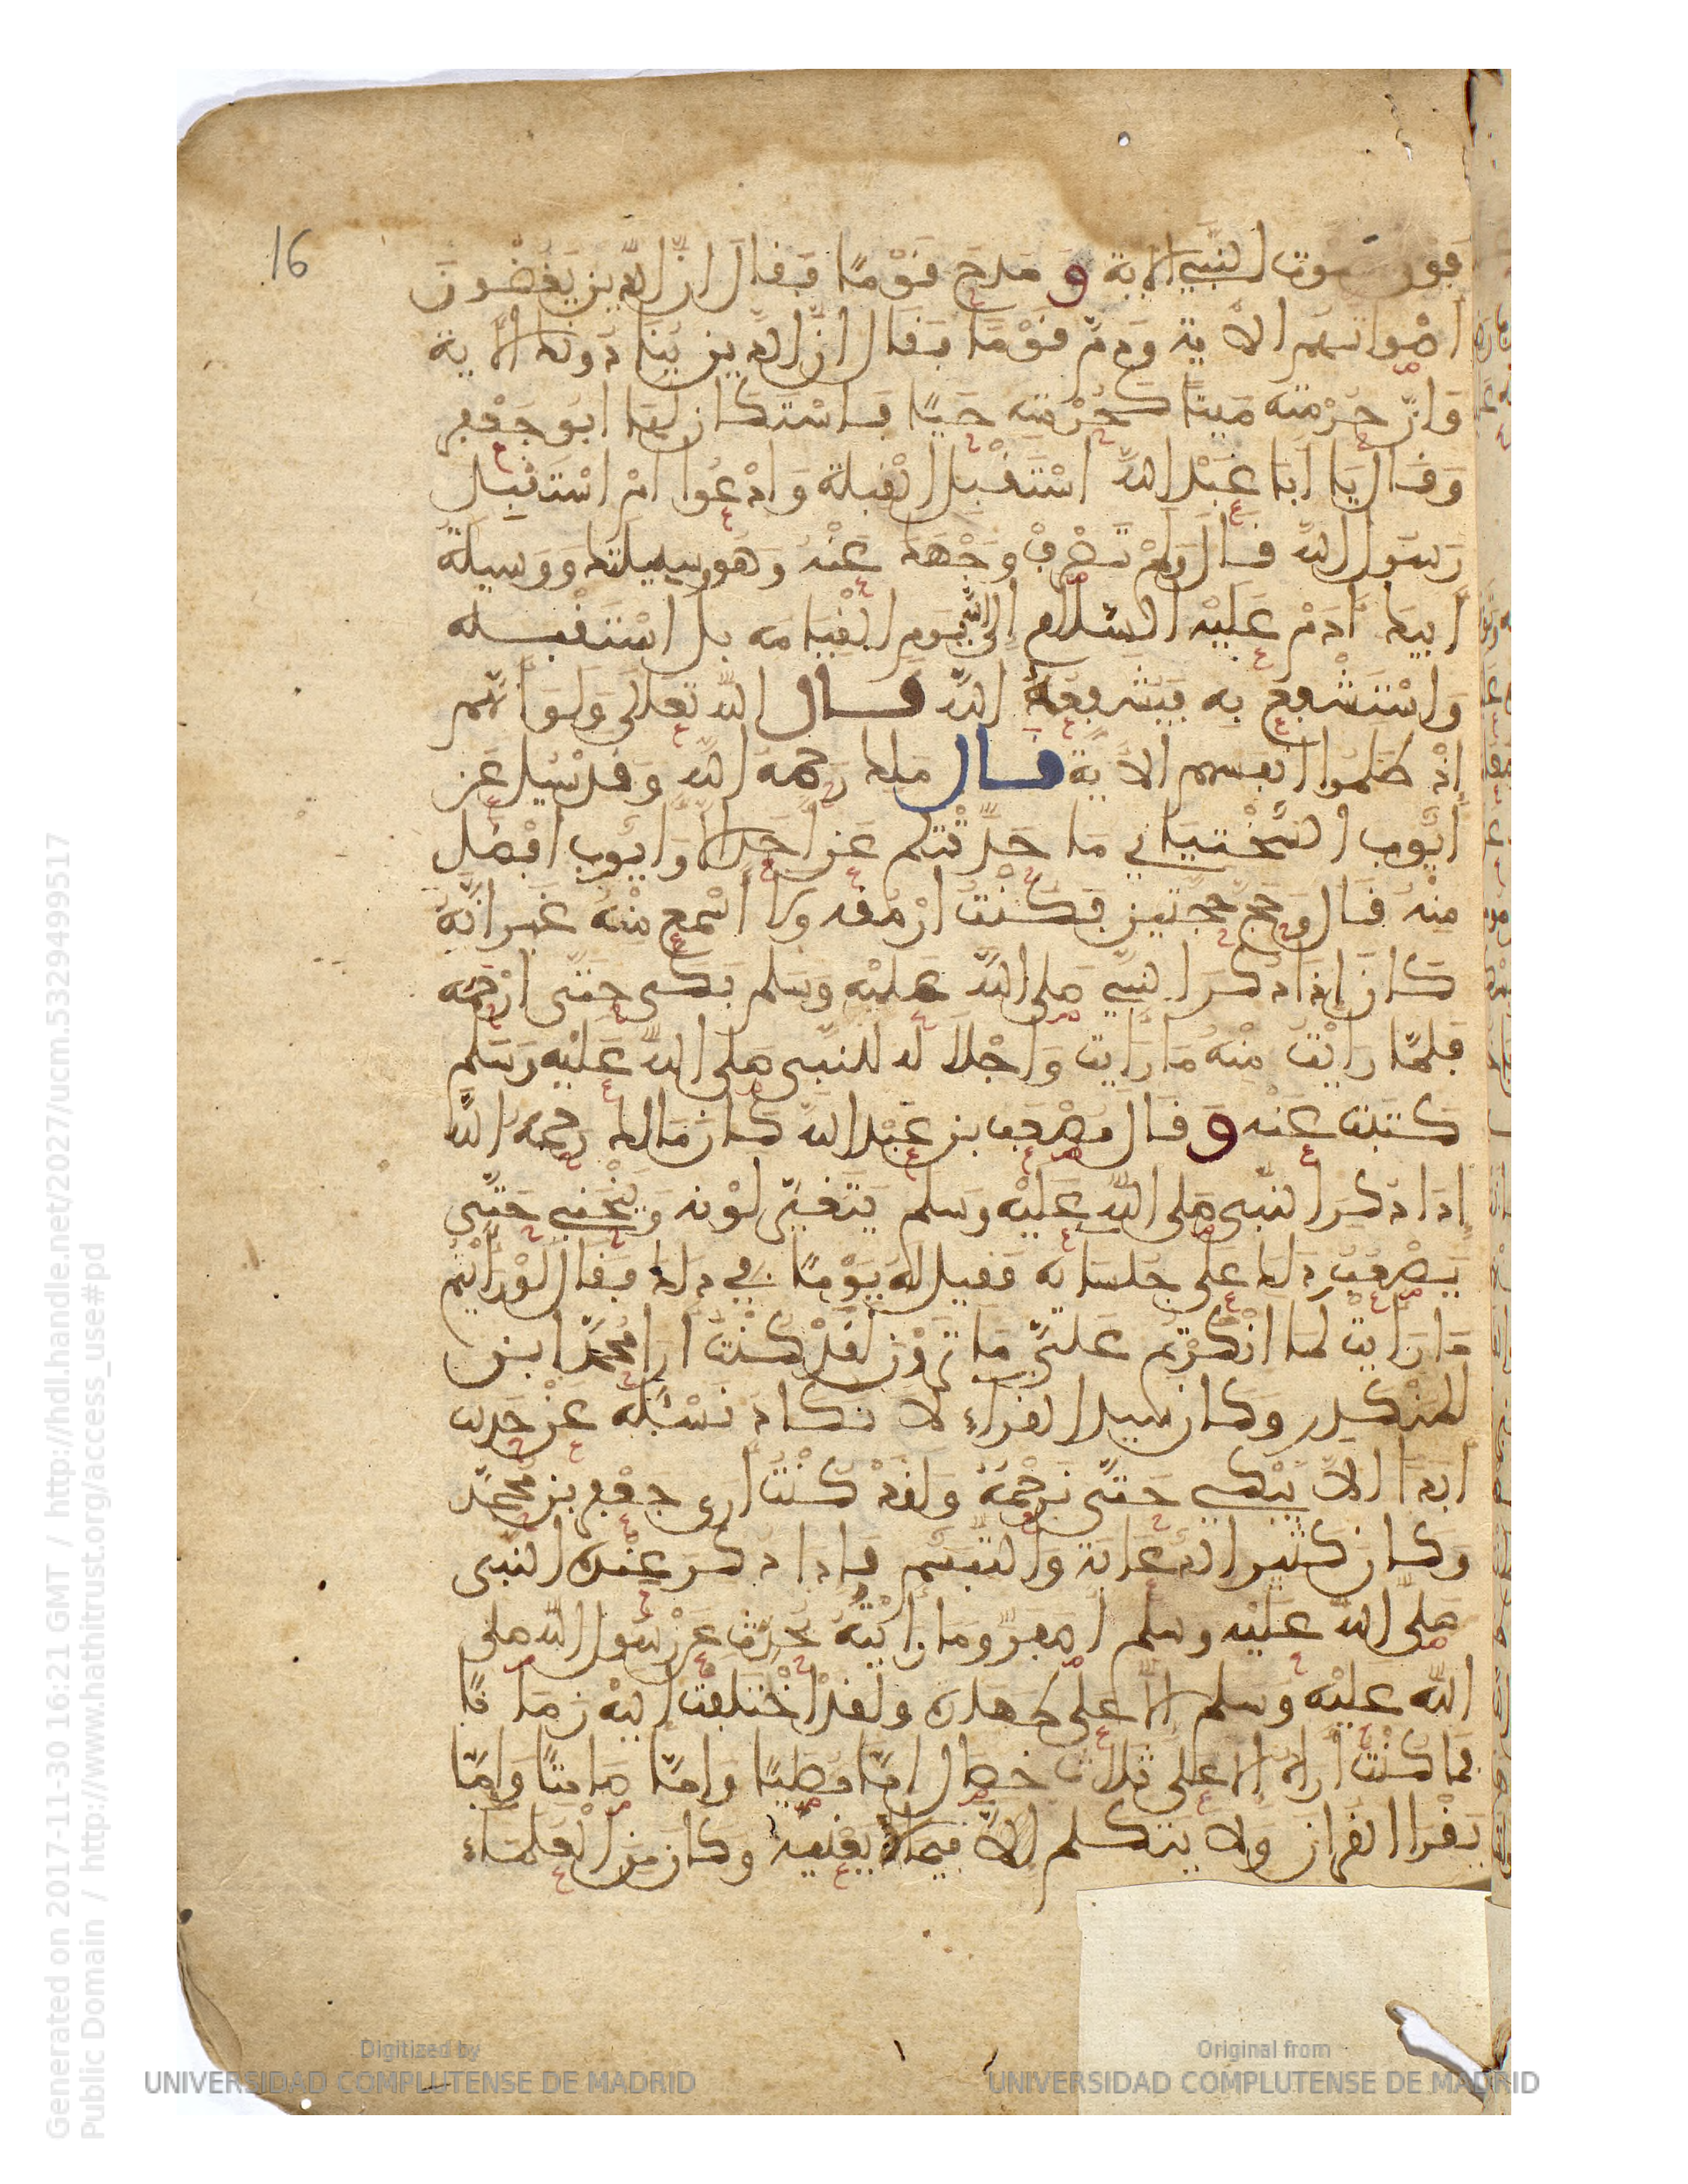 16
فوق صوت النبي الاية ومدح قومًا فقال ان الذين يغضون
اصواتهم الاية وذم قومًا فقال ان الذين ينادونك الاية
وان حرمته ميتًا كحرمته حيًا فاستكان لها ابو جعفر
وقال يا ابا عبد الله استقبل القبلة وادعوا ام استقبل
رسول الله قال ولم تصرف وجهك عنه وهو وسيلتك ووسيلة
ابيك ادم عليه السلام الى الله يوم القيامه بل استقبله
واستشفع به فيشفعه الله قال الله تعلى ولو انهم
اذ ظلموا انفسهم الاية قال ملك رحمه الله وقد سيل عن
ايوب السختياني ما حدثتكم عن احد الا وايوب افضل
منه قال وحج حجتين فكنت ارمقه ولا اسمع منه غير انه
كان اذا ذكر النبي صلى الله عليه وسلم بكى حتى ارحمه
فلما رايت منه ما رايت واجلاله للنبي صلى الله عليه وسلم
كتبت عنه وقال مصعب بن عبد الله كان مالك رحمه الله
اذا ذكر النبي صلى الله عليه وسلم يتغير لونه وينحني حتى
يصعب ذلك على جلسائه فقيل له يومًا في ذلك فقال لو رايتم
ما رايت لما انكرتم علي ما ترون لقد كنت ارا محمد ابن
المنكدر وكان سيد القراء لا نكاد نسئله عن حديث
ابدا الا يبكي حتى نرحمه ولقد كنت ارى جعفر بن محمد
وكان كثير الدعابة والتبسم فاذا ذكر عنده النبي
صلى الله عليه وسلم اصفر وما رايته يحدث عن رسول الله صلى
الله عليه وسلم الا على طهارة ولقد اختلفت اليه زمانًا
فما كنت اراه الا على ثلاث خصال امّا مصليًا وامّا صامتًا وامّا
يقرا القران ولا يتكلم الا فيما لا يعنيه وكان من العلماء
Generated on 2017-11-30 16:21 GMT / http://hdl.handle.net/2027/ucm.5329499517
Public Domain / http://www.hathitrust.org/access_use#pd
Digitized by
UNIVERSIDAD COMPLUTENSE DE MADRID
Original from
UNIVERSIDAD COMPLUTENSE DE MADRID